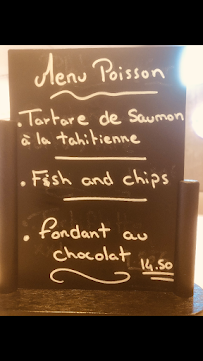 Menu Poisson
. Tartare de Saumon
à la tahitienne
. Fish and chips
. fondant au
chocolat
14.50